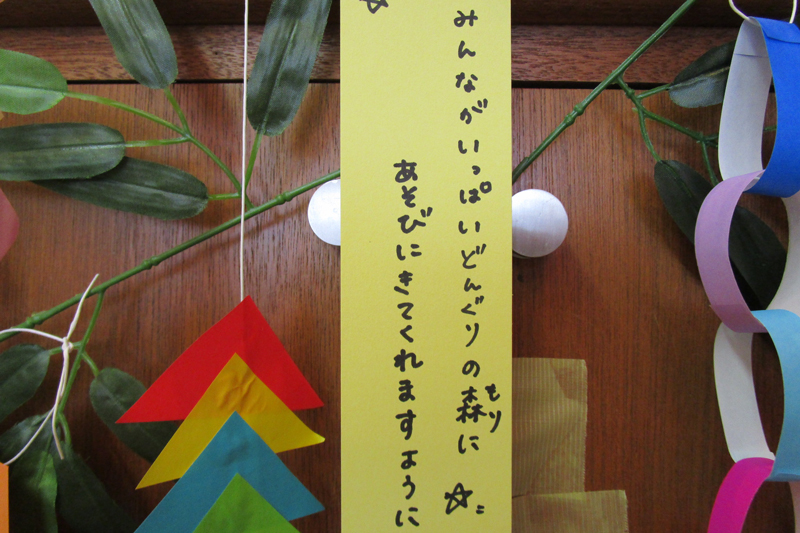 みんながいっぱいどんぐりの森に
もり
あそびにきてくれますように